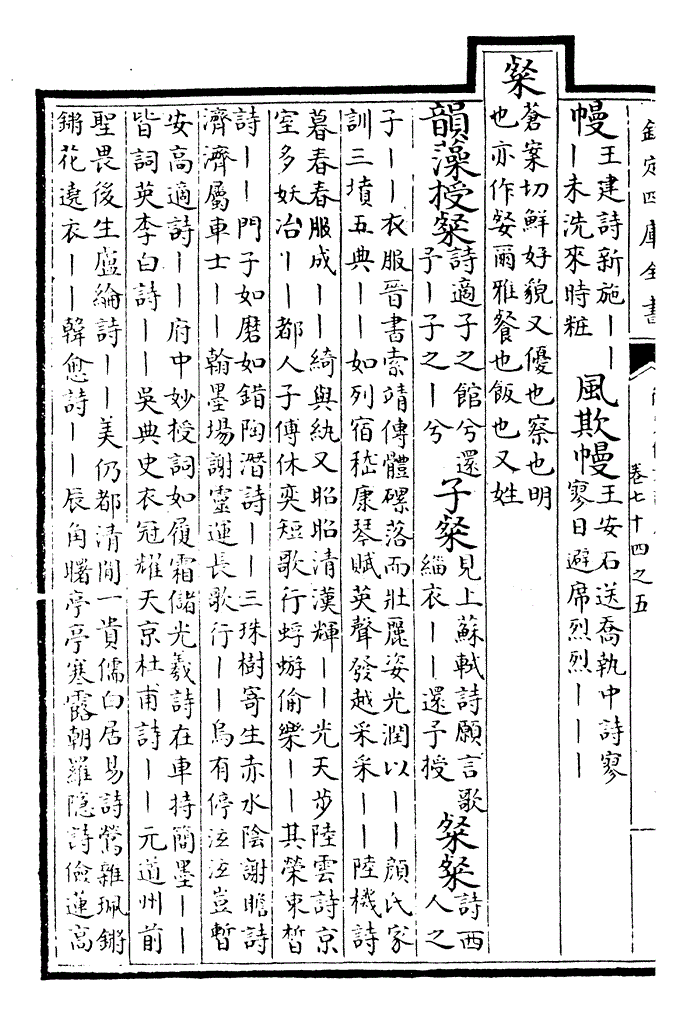 欽定四庫全書
卷七十四之五
幔
王建詩新施｜｜
｜未洗來時粧
風欺幔
王安石送喬執中詩寥
寥日避席烈烈｜｜｜
粲
蒼案切鮮好貌又優也察也明
也亦作㛑爾雅餐也飯也又姓
韻藻授粲
詩適子之館兮還
予｜子之｜兮
子粲
見上蘇軾詩願言歌
緇衣｜｜還予授
粲粲
詩西
人之
子｜｜衣服晉書索靖傳體磥落而壯麗姿光潤以｜｜顏氏家
訓三墳五典｜｜如列宿嵇康琴賦英聲發越采采｜｜陸機詩
暮春春服成｜｜綺與紈又昭昭清漢輝｜｜光天步陸雲詩京
室多妖冶｜｜都人子傅休奕短歌行蜉蝣偷樂｜｜其榮束晳
詩｜｜門子如磨如錯陶潛詩｜｜三珠樹寄生赤水陰謝瞻詩
濟濟屬車士｜｜翰墨場謝靈運長歌行｜｜烏有停泫泫豈暫
安高適詩｜｜府中妙授詞如履霜儲光羲詩在車持簡墨｜｜
皆詞英李白詩｜｜吳典史衣冠耀天京杜甫詩｜｜元道州前
聖畏後生盧綸詩｜｜美仍都清閒一貴儒白居易詩鶯雜珮鏘
鏘花遶衣｜｜韓愈詩｜｜辰角曙亭亭寒露朝羅隱詩儉蓮高